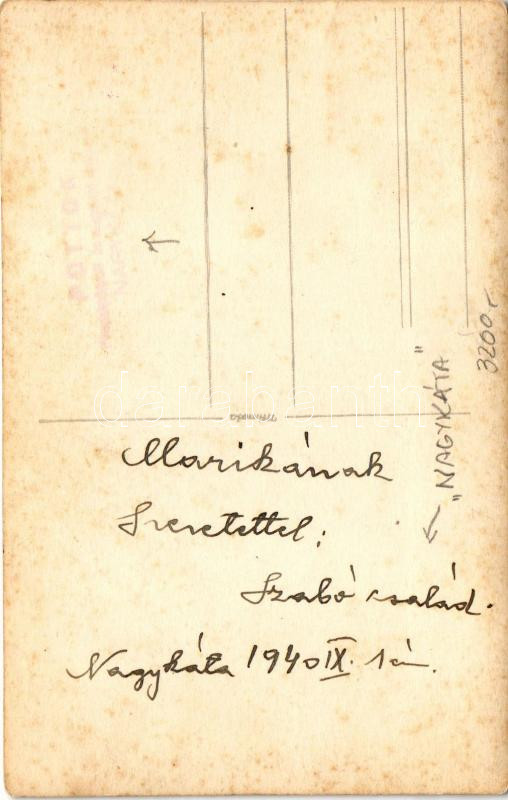 Marikának
Szeretettel:
Szabó család.
Nagykáta 1940 IX. 1 én.
"NAGYKÁTA"
3200.-